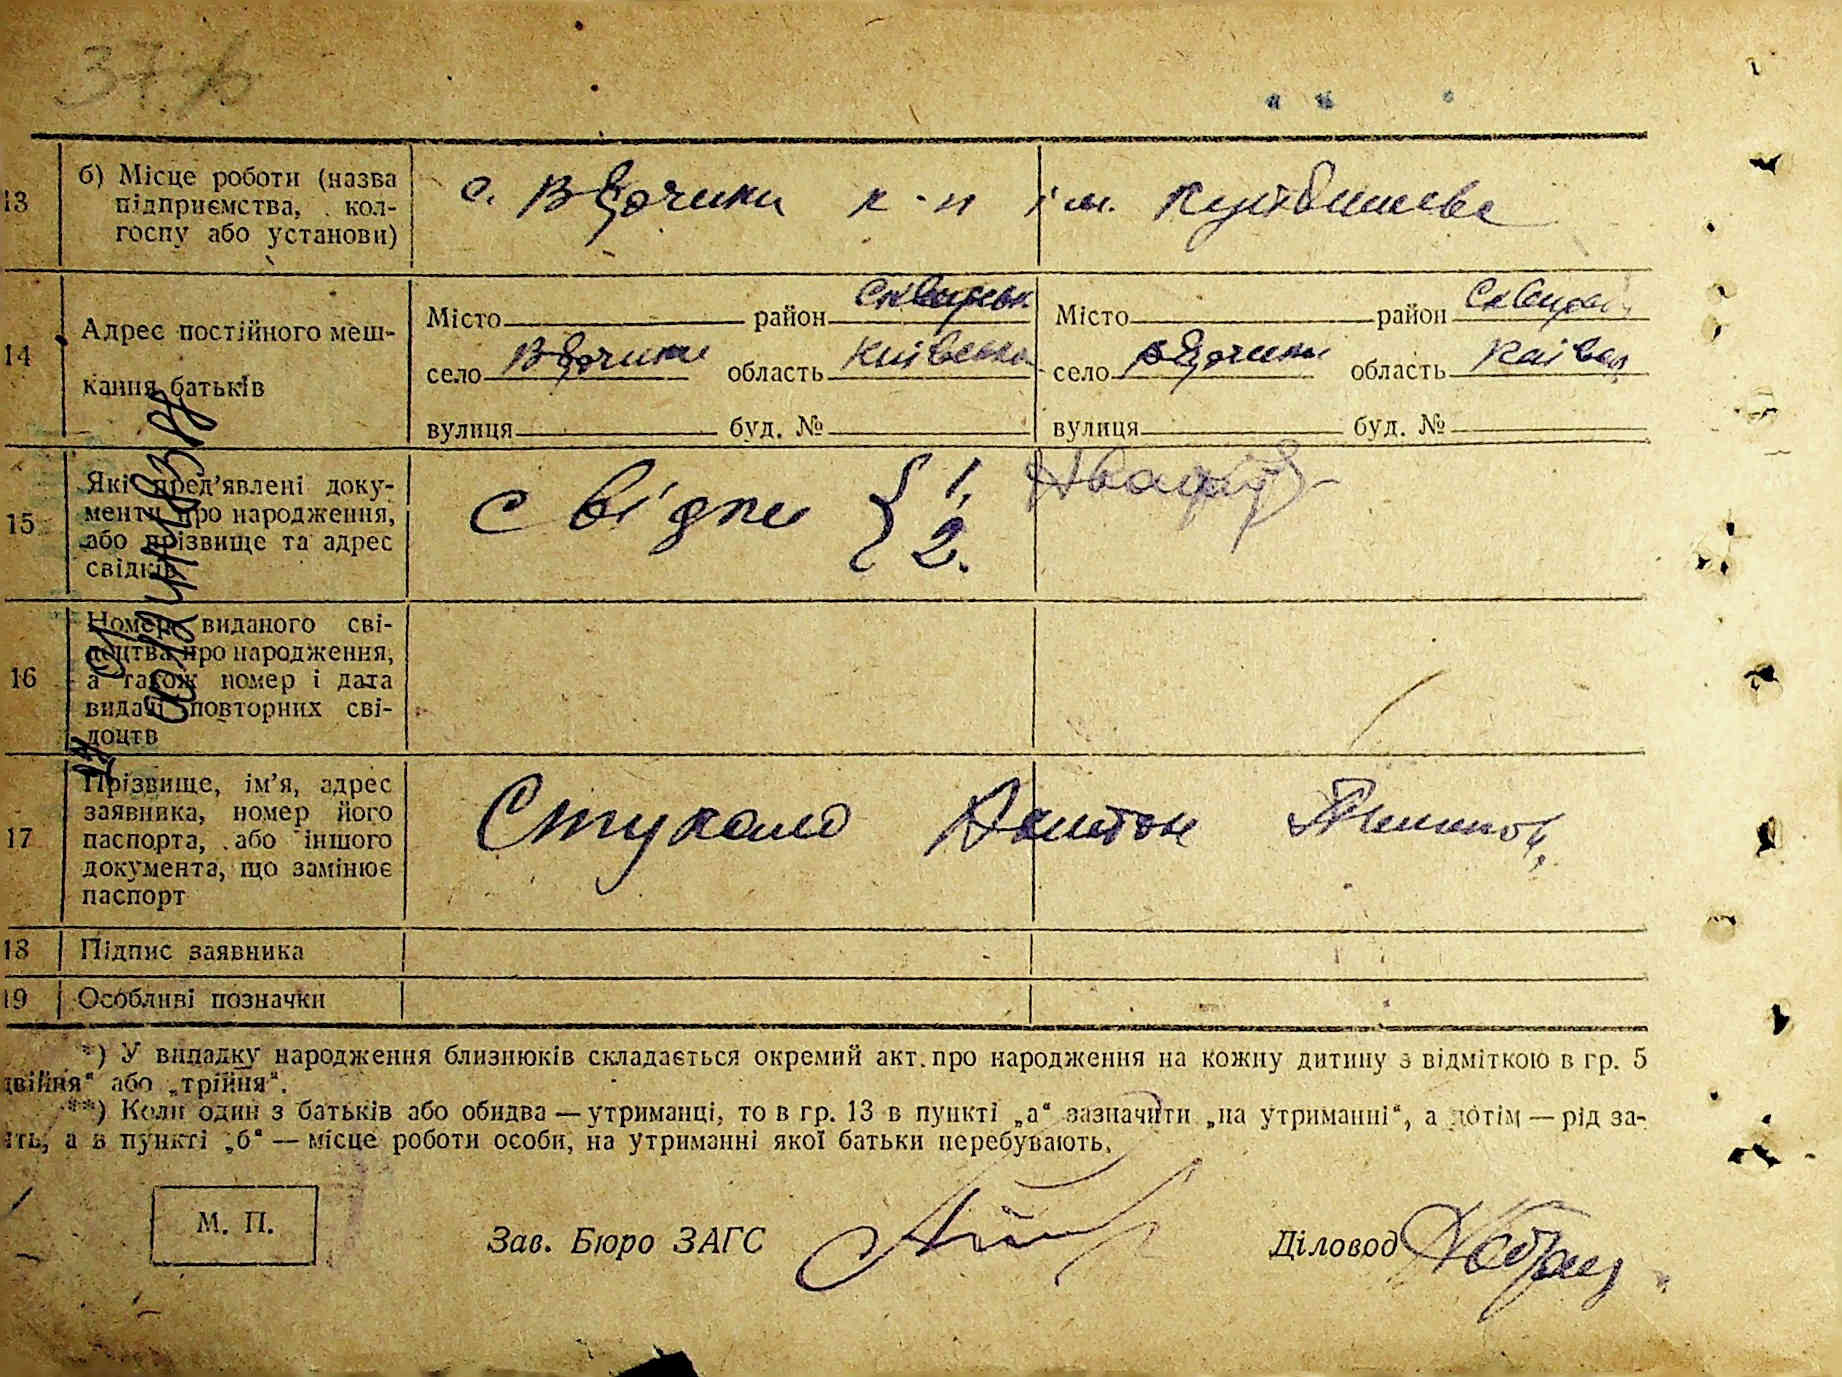 37 зв
13 б) Місце роботи (назва підприємства, кол-
госпу або установи)
с. к-п ім. Куйбишева
14 Адрес постійного меш-
кання батьків
Місто район Сквирськ Місто район Сквирськ
село область Київська село область Київськ
вулиця буд. № вулиця буд. №
15 Які пред'явлені доку-
менти про народження,
або прізвище та адрес
свідків
свідки { 1.
2.
16 Номер виданого сві-
доцтва про народження,
а також номер і дата
видачі повторних сві-
доцтв
17 Прізвище, ім'я, адрес
заявника, номер його
паспорта, або іншого
документа, що замінює
паспорт
Стукало Антон
18 Підпис заявника
19 Особливі позначки
*) У випадку народження близнюків складається окремий акт про народження на кожну дитину з відміткою в гр. 5
двійня" або „трійня".
**) Коли один з батьків або обидва — утриманці, то в гр. 13 в пункті „а" зазначити „на утриманні", а потім — рід за-
ять, а в пункті „б" — місце роботи особи, на утриманні якої батьки перебувають.
М. П. Зав. Бюро ЗАГС Діловод